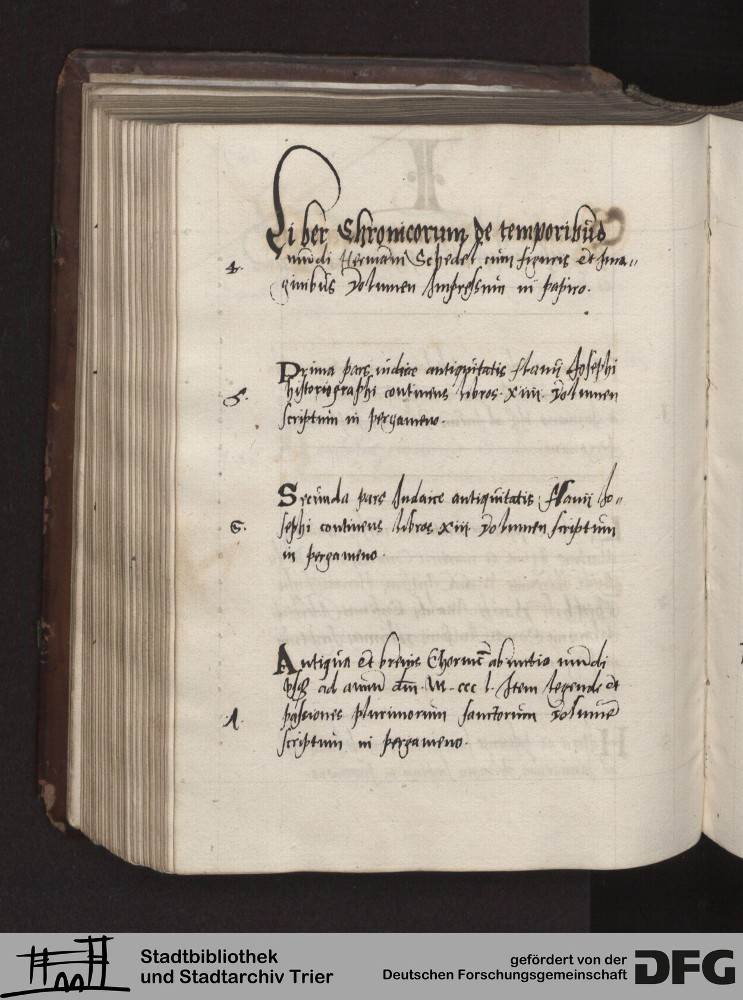 Liber Chronicorum de temporibus
4. mūdi Hermani Schedel cum figuris et Jma„
ginibus Volumen Jmpressum in papiro.
Prima pars iudice antiquitatis flauii Josephi
historiographi continens libros. xiiii. Volumen
scriptum in pergameno.
Secunda pars Judaice antiquitatis flauii Jo„
S. sephi continens libros xiii Volumen scriptum
in pergameno.
Antiqua et breuis ab initio mūdi
ad annū dm̄. M. ccc l. Jtem legende et
.A. passiones plurimorum sanctorum Volumē
scriptum in pergameno.
Stadtbibliothek
und Stadtarchiv Trier
gefördert von der
Deutschen Forschungsgemeinschaft
DFG